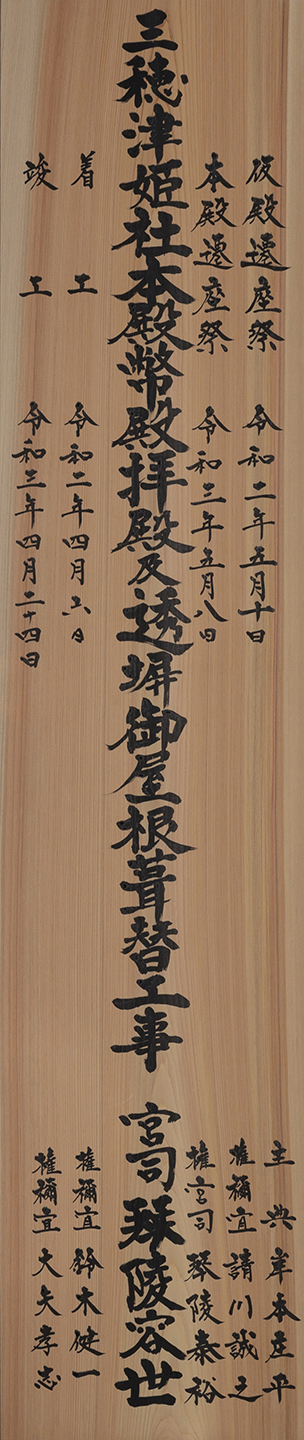 仮殿遷座祭 令和二年五月十日
本殿遷座祭 令和三年五月八日
三穂津姫社本殿幣殿拝殿及透塀御屋根葺替工事 宮司 琴陵容世
着工 令和二年四月六日
竣工 令和三年四月二十四日
主典 岸本庄平
権禰宜 請川誠之
権宮司 琴陵泰裕
権禰宜 鈴木健一
権禰宜 大矢孝志